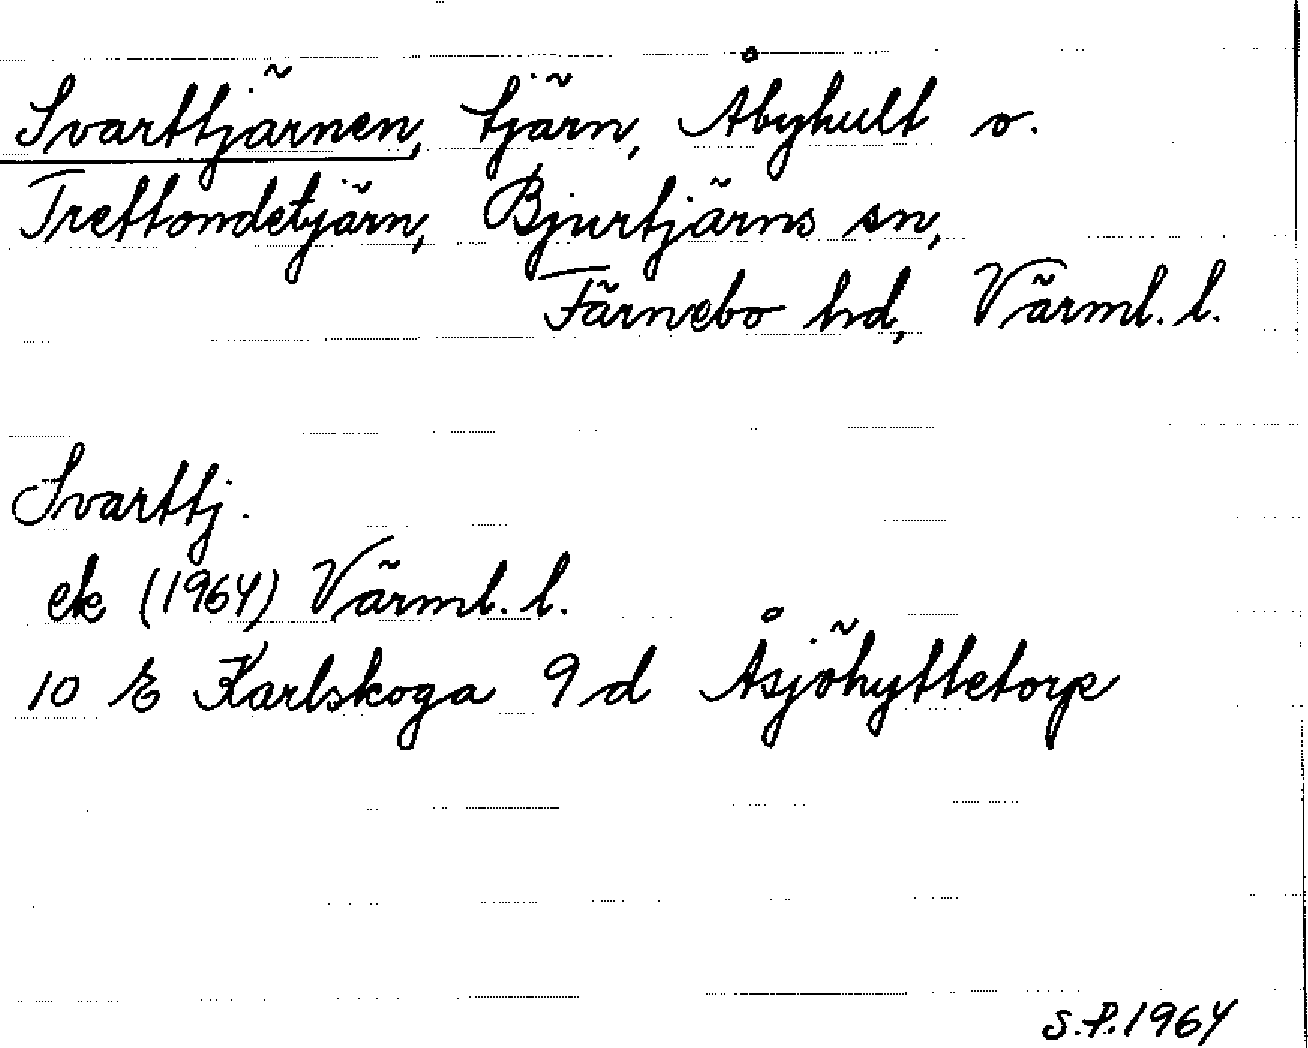 Svarttjärnen, tjärn, Åbyhult o.
Trettondetjärn, Bjurtjärns sn,
Färnebo hd, Värml. l.
Svarttj.
ek (1964) Värml. l.
10 E Karlskoga 9 d Åsjöhyttetorp
S.P. 1964